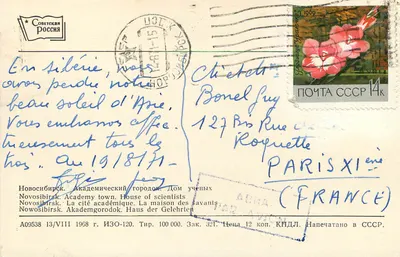 Советская
Россия
ПОЧТА СССР 14к
En Sibérie, nous
avons perdu notre
beau soleil d'Asie.
Vous embrassons affec
tueusement tous les
trois. Au 19/8/71-
Bonel Guy
127 Bis Rue de la
Roquette
PARIS XI ème
(FRANCE)
PAR AVION
Новосибирск. Академический городок. Дом ученых
Novosibirsk. Academy town. House of scientists
Novosibirsk. La cité académique. La maison des savants
Novosibirsk. Akademgorodok. Haus der Gelehrten
А09538 13/VIII 1968 г. ИЗО-120. Тир. 100 000. Зак. 321. Цена 12 коп. КПДЛ. Напечатано в СССР.